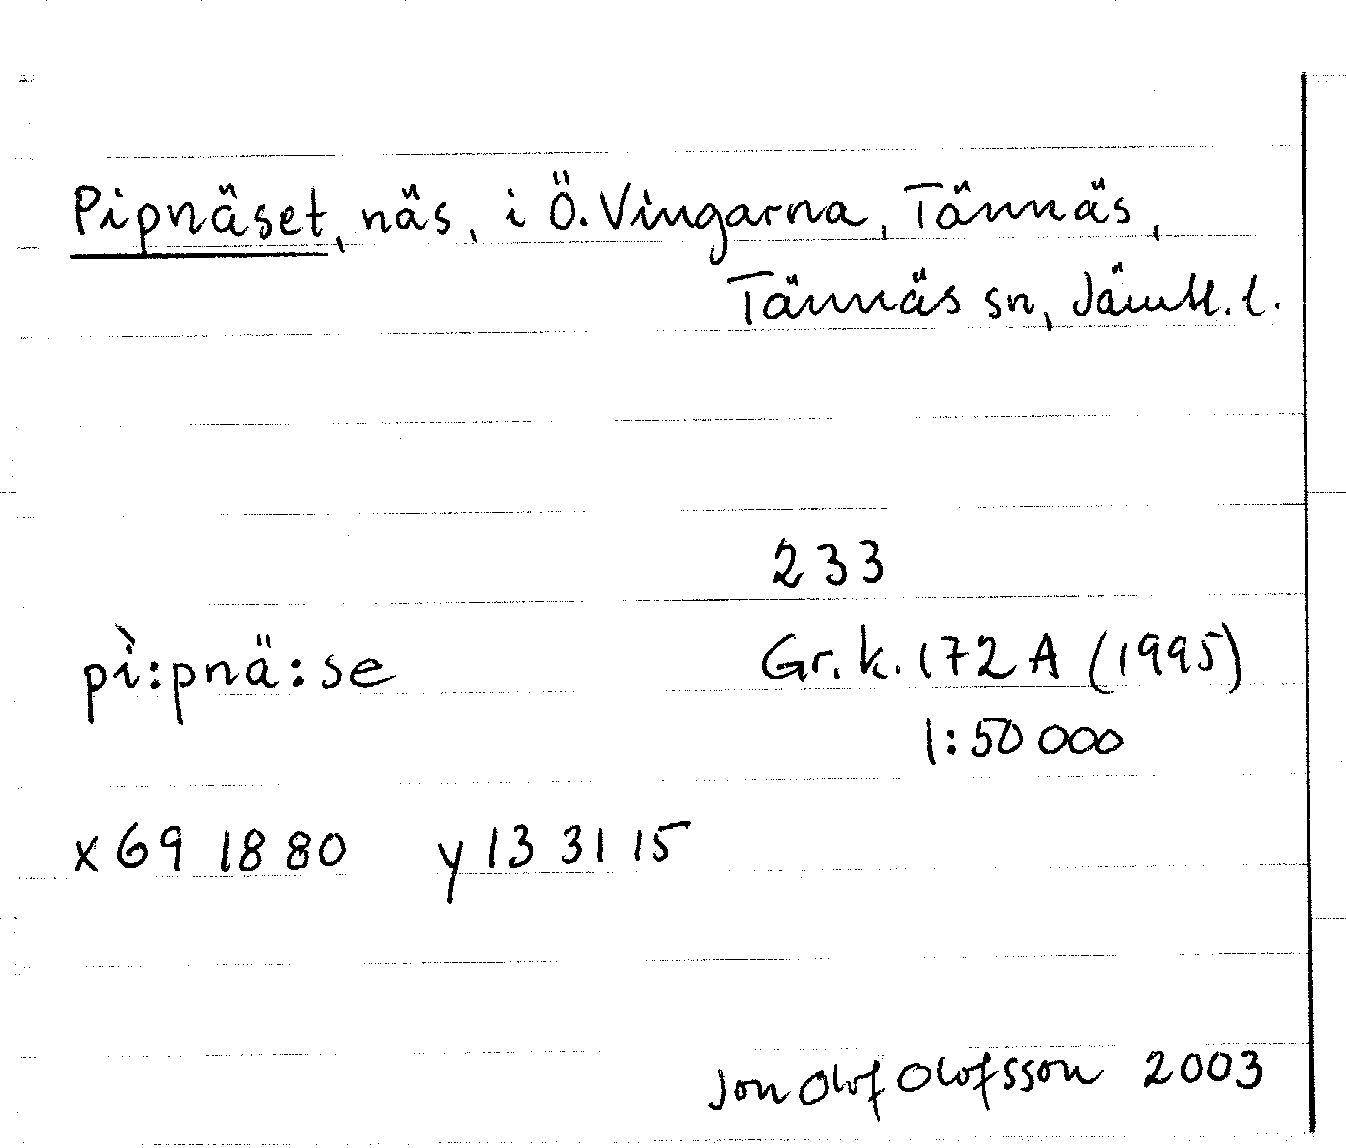 Pipnäset, näs, i Ö. Vingarna, Tännäs,
Tännäs sn, Jämtl. l.
233
pì:pnä:se Gr. k. 172 A (1995)
1:50 000
x 69 18 80 y 13 31 15
Jon Olof Olofsson 2003